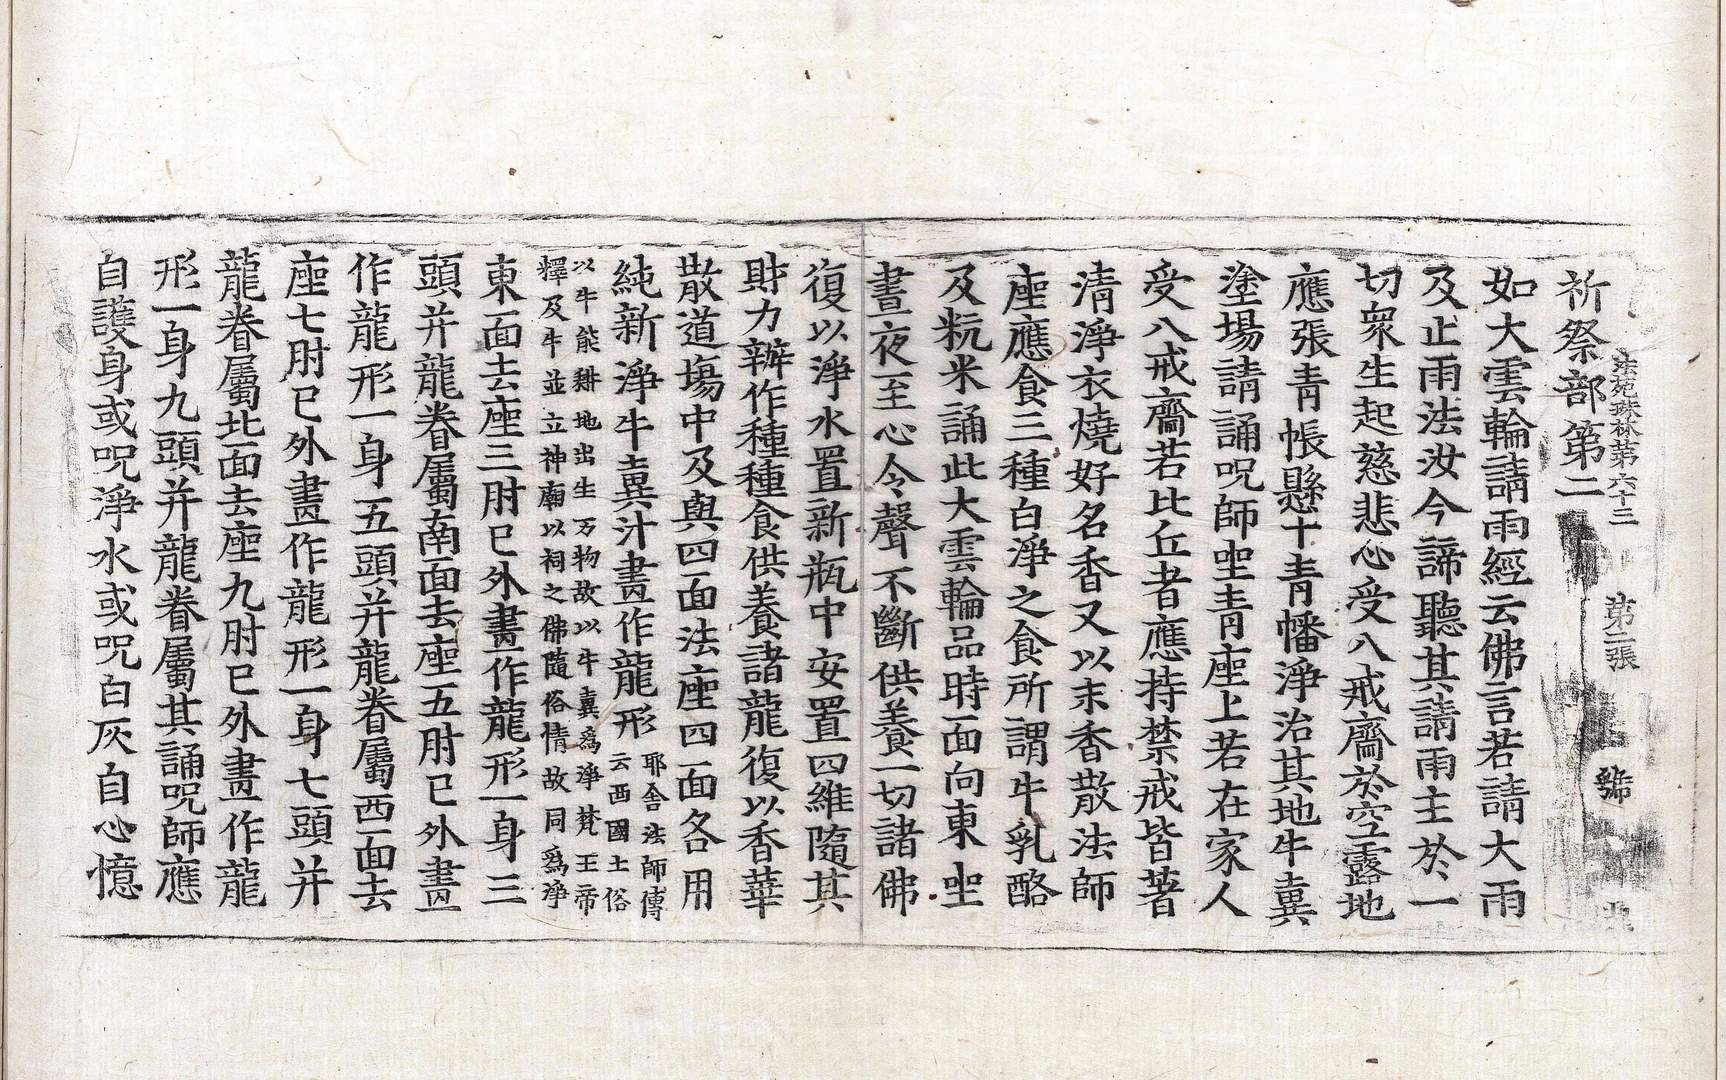 法苑珠林第六十三　第二張　號
祈祭部第二
如大雲輪請雨經云佛言若請大雨
及止雨法汝今諦聽其請雨主於一
切衆生起慈悲心受八戒齋於空露地
應張青帳懸十青幡淨治其地牛糞
塗場請誦呪師坐青座上若在家人
受八戒齋若比丘者應持禁戒皆著
清淨衣燒好名香又以末香散法師
座應食三種白淨之食所謂牛乳酪
及粇米誦此大雲輪品時面向東坐
晝夜至心令聲不斷供養一切諸佛
復以淨水置新瓶中安置四維隨其
財力辦作種種食供養諸龍復以香華
散道場中及與四面法座四面各用
純新淨牛糞汁畫作龍形耶舍法師傳云西國土俗
以牛能耕地出生万物故以牛糞爲淨梵王帝釋及牛並立神廟以祠之佛隨俗情故同爲淨
東面去座三肘已外畫作龍形一身三
頭并龍眷屬南面去座五肘已外畫
作龍形一身五頭并龍眷屬西面去
座七肘已外畫作龍形一身七頭并
龍眷屬北面去座九肘已外畫作龍
形一身九頭并龍眷屬其誦呪師應
自護身或呪淨水或呪白灰自心憶